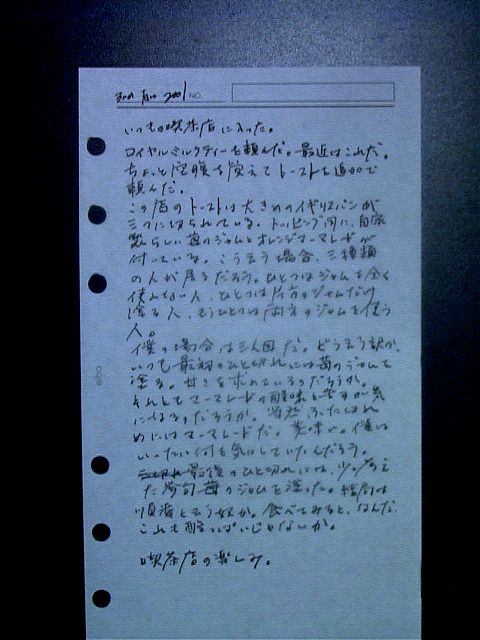 3rd Apr 2001 NO.
いつもの喫茶店に入った。
ロイヤルミルクティーを頼んだ。最近はこれだ。
ちょっと空腹を覚えてトーストを追加で
頼んだ。
この店のトーストは大きめのイギリスパンが
三つに切られている。トッピング用に、自家
製らしい苺のジャムとオレンジマーマレードが
付いている。こうゆう場合、三種類
の人が居るだろう。ひとつはジャムを全く
使わない人、ひとつは片方のジャムだけ
塗る人、もうひとつは両方のジャムを使う
人。
僕の場合は三人目だ。どうゆう訳か、
いつも最初のひと切れには苺のジャムを
塗る。甘さを求めているのだろうか。
それともマーマレードの酸味と苦さが気
になるのだろうか。当然、ふた切れ
めにはマーマレードだ。美味い。僕は
いったい何を気にしていたんだろう。
最後のひと切れには、少し考え
た落句 苺のジャムを塗った。結局は
順番とゆう奴か。食べてみると、なんだ、
これも酸っぱいじゃないか。
喫茶店の楽しみ。